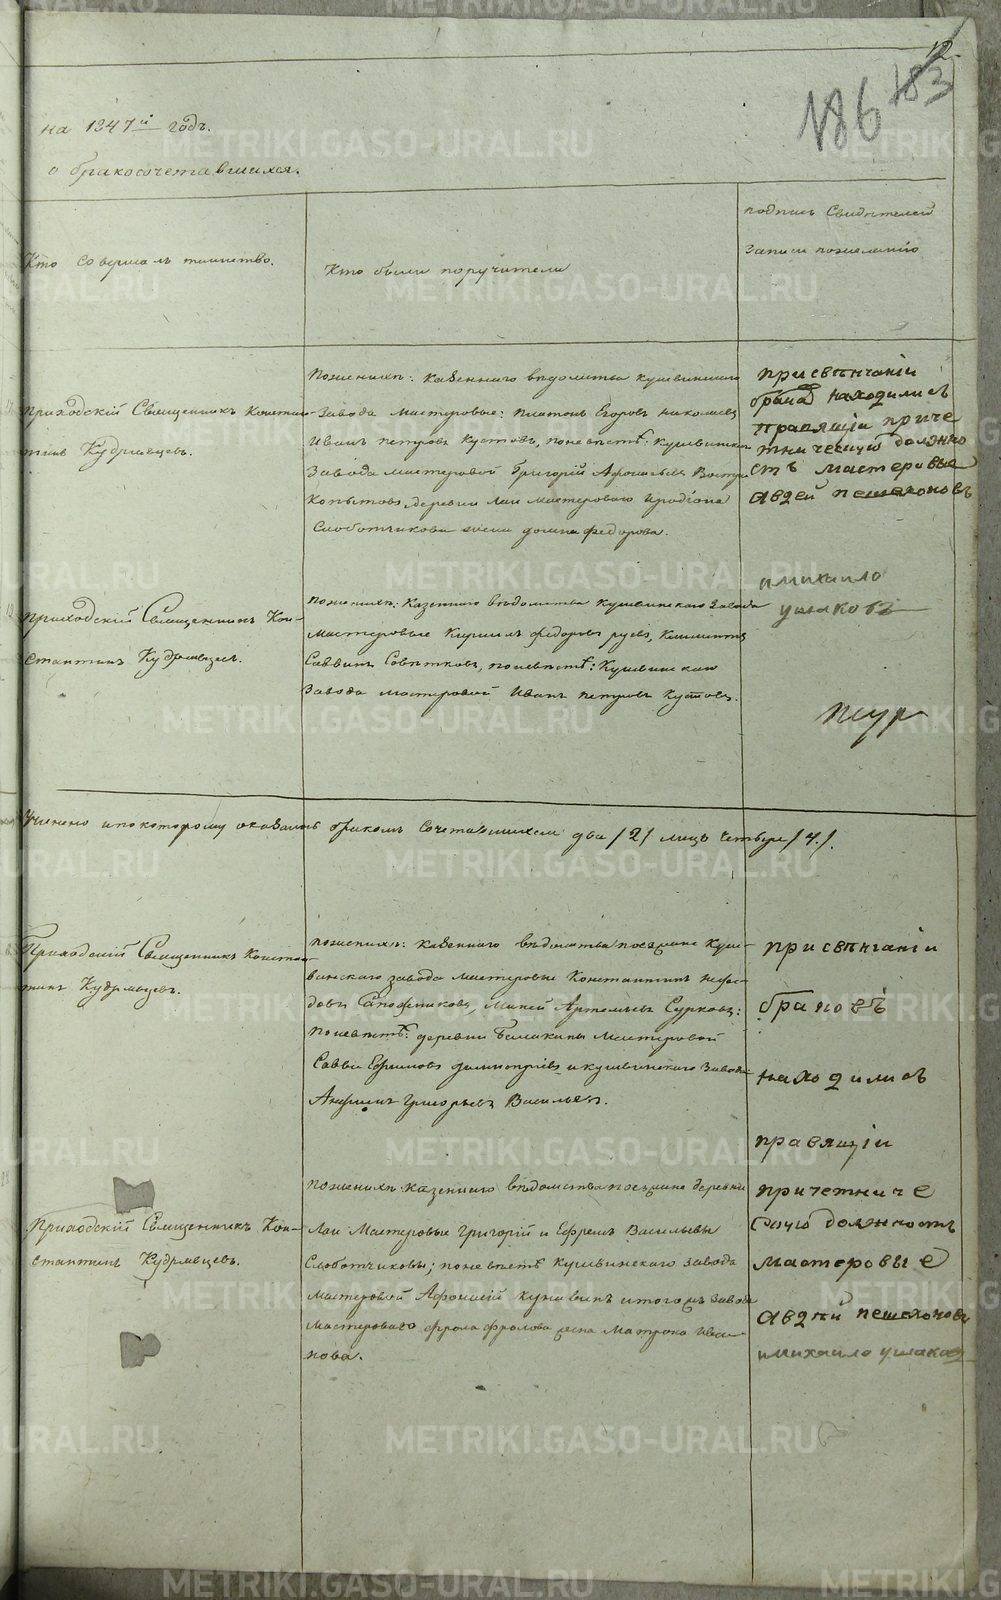 12.
183
186
на 1847й годъ.
о бракосочетавшихся.
Кто совершалъ таинство.
Кто были поручители
подпись Свидѣтелей
Записи пожеланiю
Приходскiй Священникъ Констан-
тинъ Кудрявцевъ.
Пожениxѣ: казеннаго вѣдомства кушвинскаго
Завода Мастеровые: Платонъ Егоровъ Николаевъ
Иванъ Петровъ Кустовъ, поневѣстѣ: кушвинскаго
Завода мастеровой Григорiй Афонасьевъ Востро
Копытовъ, деревни Лаи мастероваго Иродiона
Слоботчикова жена Домна Федорова.
присвѣнчанiи
брака находились
правящiи приче
тническую должно
сть мастеровые
Авдей пешехоновъ
имихаило
ушаковъ
Приходскiй Священникъ Кон-
стантинъ Кудрявцевъ.
пожениxѣ: Казеннаго вѣдомства Кушвинскаго Завода
Мастеровые Кирилъ Федоровъ, Климентъ
Саввинъ Совѣтковъ, поневѣстѣ: Кушвинскаго
Завода мастеровой Иванъ Петровъ Кустовъ.
Учинено ипокоторому оказалось бракомъ сочетавшихся два /2/ лицъ четыре /4/.
Приходскiй Священникъ Констан-
тинъ Кудрявцевъ.
пожениxѣ: казеннаго вѣдомства Куш-
винскаго завода мастеровые Константинъ Нефе-
довъ Сапожниковъ, Миней Артемьевъ Сурковъ:
поневѣстѣ: деревни Балакины Мастеровой
Савва Ефимовъ и кушвинскаго Завода
Григорьевъ Васильевъ.
присвѣнчанiи
браковъ
находились
правящiи
причетниче
скую должность
мастеровые
Авдѣй пешехоновъ
имихаило ушаковъ
Приходскiй Священникъ Кон-
стантинъ Кудрявцевъ.
пожениxѣ: казеннаго вѣдомства деревни
Лаи Мастеровые Григорiй и Ефремъ Васильевы
Слоботчиковы; поневѣстѣ Кушвинскаго завода
мастеровой Афонасiй итогожъ завода
мастероваго Фрола Фролова жена Матрона Ива-
нова.
METRIKI.GASO-URAL.RU